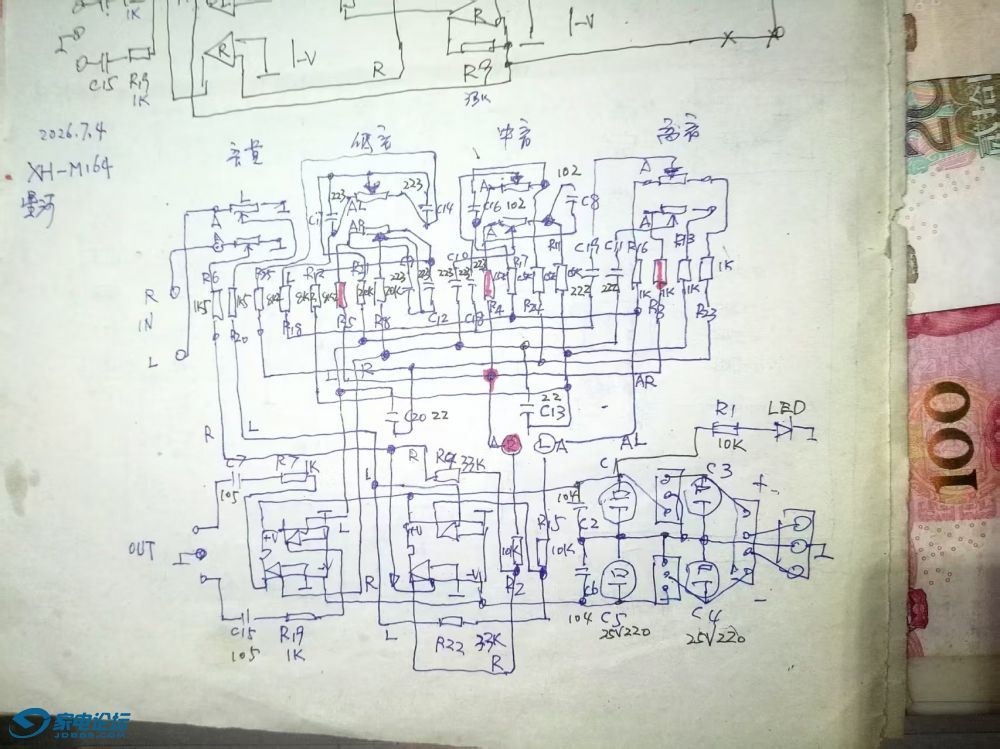 1K
C15
R19
1K
R
|-V
R
R
|-V
R9
33K
2026.7.4
XH-M164
音量
低音
中音
高音
A
L
A
223
223
C14
AL
AR
C16
102
A
102
C8
A
A
R
IN
L
R6
1K5
1K5
R20
R18
R5
20K
20K
R8
223
223
C12
223
223
C10
223
C18
R4
R17
R24
R11
C19
222
C11
222
R16
1K
1K
R3
R13
1K
1K
R23
R
L
C20 22
22
C13
AR
AL
R
L
A
L
A
R1
10K
LED
C7
105
R7
1K
R
33K
L
+V
104
C1
C2
C3
+
-
OUT
+V
L
R
-V
10K
R2
R15
10K
C6
104
C5
25V220
C4
25V220
C15
105
R19
1K
L
R22
33K
R
20
贰拾
100
家电论坛
JDBBS.COM